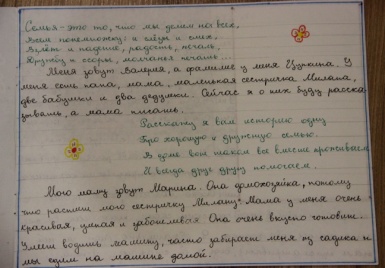 Семья - это то, что мы делим на всех,
Всем понемножку: и слёзы и смех,
Взлёт и падение, радость, печаль,
Дружбу и ссоры, молчанья печать.
Меня зовут Валерия, а фамилия у меня . У
меня есть папа, мама, маленькая сестричка Милана,
две бабушки и два дедушки. Сейчас я о них буду расска
зывать, а мама писать.
Расскажу я вам историю одну
Про хорошую и дружную семью.
В доме вот таком все вместе проживаем
И всегда друг другу помогаем.
Мою маму зовут Марина. Она домохозяйка, потому
что растит мою сестричку Милану. Мама у меня очень
красивая, умная и заботливая. Она очень вкусно готовит.
Умеет водить машину, часто забирает меня из садика и
мы едем на машине домой.